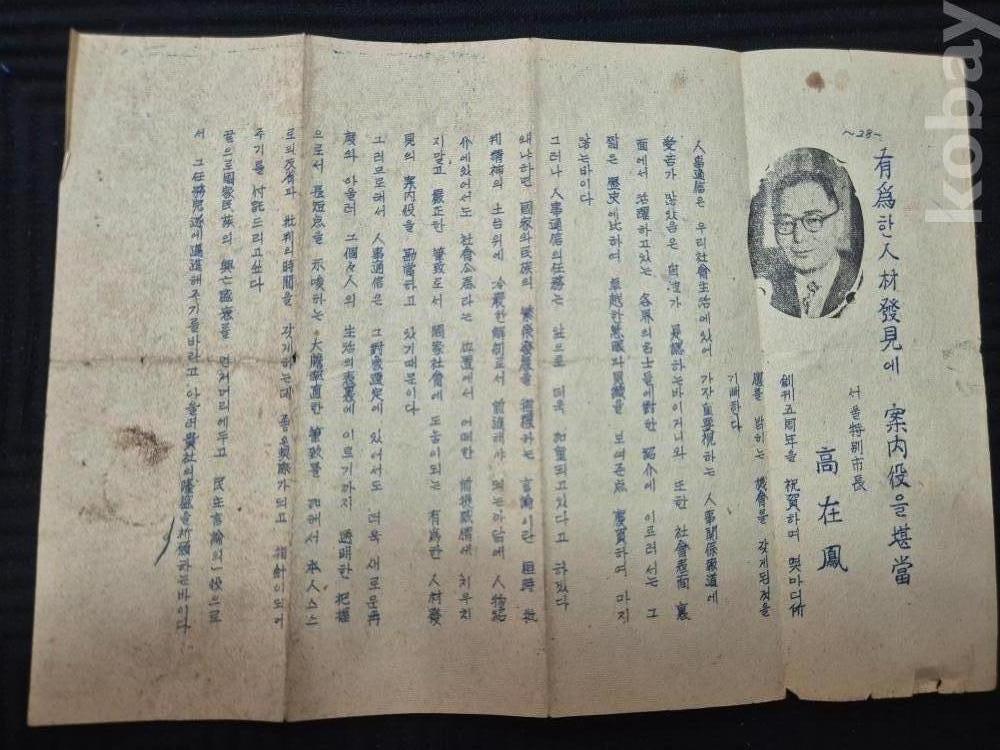 ~28~
有爲한 人材發見에 案内役을 堪當
서울特别市長
高在鳳
創刊五周年을 祝賀하며 몇마디 所
懷를 밝히는 機會를 갖게된것을
기뻐한다
人事通信은 우리社會生活에있어 가장重要視하는 人事関係報道에
愛苦가 많았음은 良認하는바이거니와 또한 社會表面 裏
面에서 活躍하고있는 各界의名士들에對한 紹介에 이르러서는 그
짧은 歷史에比하여 卓越한 業蹟과 貢献을 보여준点 慶賀하여 마지
않는바이다
그러나 人事通信의任務는 앞으로 더욱 加重되고있다고 하겠다
왜냐하면 國家와民族의 繁榮發展을 하는 言論이란 批
判精神의 土台위에 冷嚴한解剖로서 前進해야 되는아닌에 人物紹
介에있어서도 社會公器라는 立場에서 어떠한 前提 에 치우치
지말고 嚴正한 筆致로서 國家社會에 도움이되는 有爲한 人材發
見의 案内役을 勘當하고 있기때문이다
그러므로해서 人事通信은 그對象選定에 있어서도 더욱 새로운角
度와 아울러 그個々人의 生活의表裏에 이르기까지 透明한 把握
으로서 長短点을 示唆하는 大膽率直한 筆致를 加해서 本人스스
로의反省과 批判의時間을 갖게하는데 좋은契機가되고 指針이되어
주기를 付託드리고싶다
끝으로國家民族의 興亡盛衰를 언저머리에두고 民主言論의一役으로
서 그任務完遂에邁進해주기를바라고 아울러貴社의隆盛을祈願하는바이다
kobay